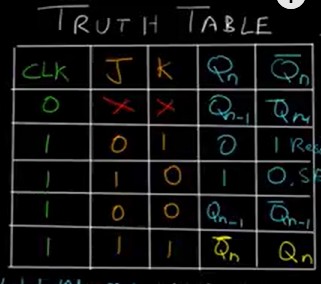 TRUTH TABLE
CLK J K Qn Q̅n
0 X X Qn-1 Q̅n-1
1 0 1 0 1 Rese
1 1 0 1 0. SE
1 0 0 Qn-1 Q̅n-1
1 1 1 Q̅n Qn